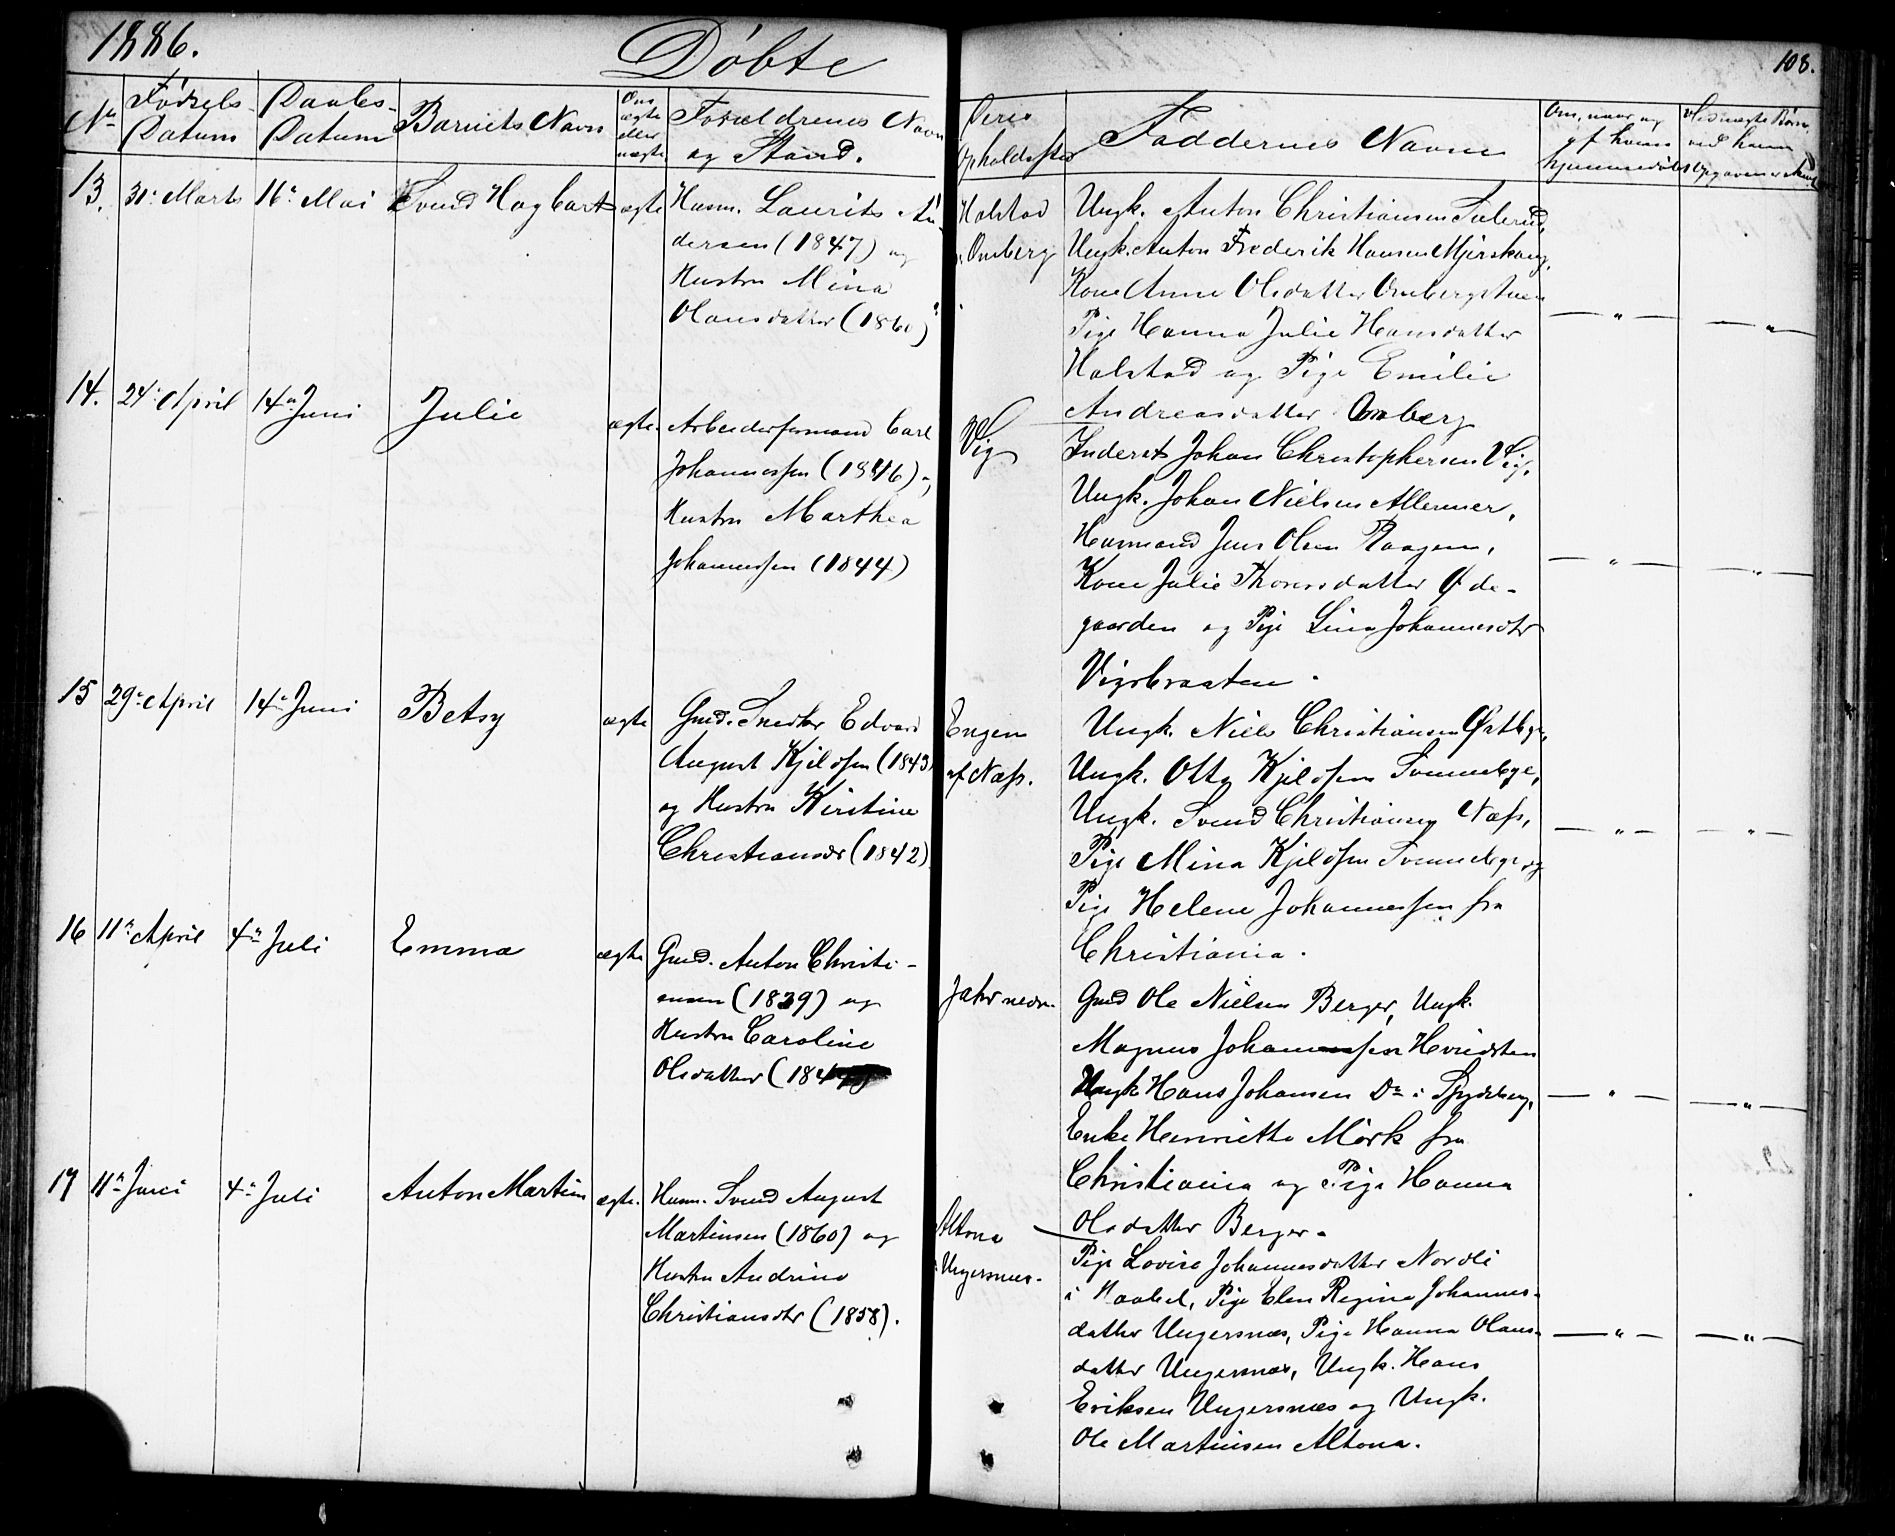 1886.
Döbte
108.
No
Födsels-
Datum
Daabs-
Datum
Barnets Navn
Om
ægte
eller
uægte
Forældrenes Navn
og Stand.
Deres
Opholdssted
Faddernes Navne
Om, naar og
af hvem
hjemmedöbt
13.
31te Marts
16de Mai
Svend Hagbart
ægte
Husm. Laurits An-
dersen (1847) og
Hustru Mina
Olausdatter (1860)
Holstad
Omberg
Ungk. Anton Christiansen
Ungk. Anton Frederik Hansen
Kone Anne Olsdatter
Pige Hanna Julie Hansdatter
Holstad og Pige Emilie
Andreasdatter Omberg
14.
24de April
14de Juni
Julie
ægte.
Arbeiderformand Carl
Johannessen (1846) og
Hustru Marthea
Johannessen (1844)
Vig
Inderst Johan Christophersen Vig,
Ungk. Johan Nielsen
Husmand Jens Olsen
Kone Julie Thoresdatter Öde-
gaarden og Pige Lina Johannesdtr
Vigsbraaten.
15
29de April
14de Juni
Betsy
ægte
Gmd. Snedker Edvard
August Kjelssen (1843)
og Hustru Kirstine
Christiansdr (1842)
Engen
af Næss.
Ungk. Niels Christiansen Østbye,
Ungk. Otto Kjelssen
Ungk. Svend Christiansen Næss,
Pige Mina Kjelssen
Pige Helene Johannessen fra
Christiania.
16
11te April
4de Juli
Emma
ægte
Gmd. Anton Christi-
ansen (1839) og
Hustru Caroline
Olsdatter (184
Jahr nedre
Gmd Ole Nielsen Berger, Ungk.
Magnus Johannessen Hvidsten
Ungk Hans Johansen Do i Spydeberg,
Enke Henriette Mörk fra
Christiania og Pige Hanna
Olsdatter Berger.
17
11te Juni
4de Juli
Anton Martin
ægte.
Husm. Svend August
Martinsen (1860) og
Hustru Andrine
Christiansdtr (1858).
Altona
Ungersnæs.
Pige Lovise Johannesdatter Nordli
i Haabøl, Pige Elen Regine Johannes-
datter Ungersnæs, Pige Hanna Olaus-
datter Ungersnæs, Ungk. Hans
Eriksen Ungersnæs og Ungk.
Ole Martinsen Altona.